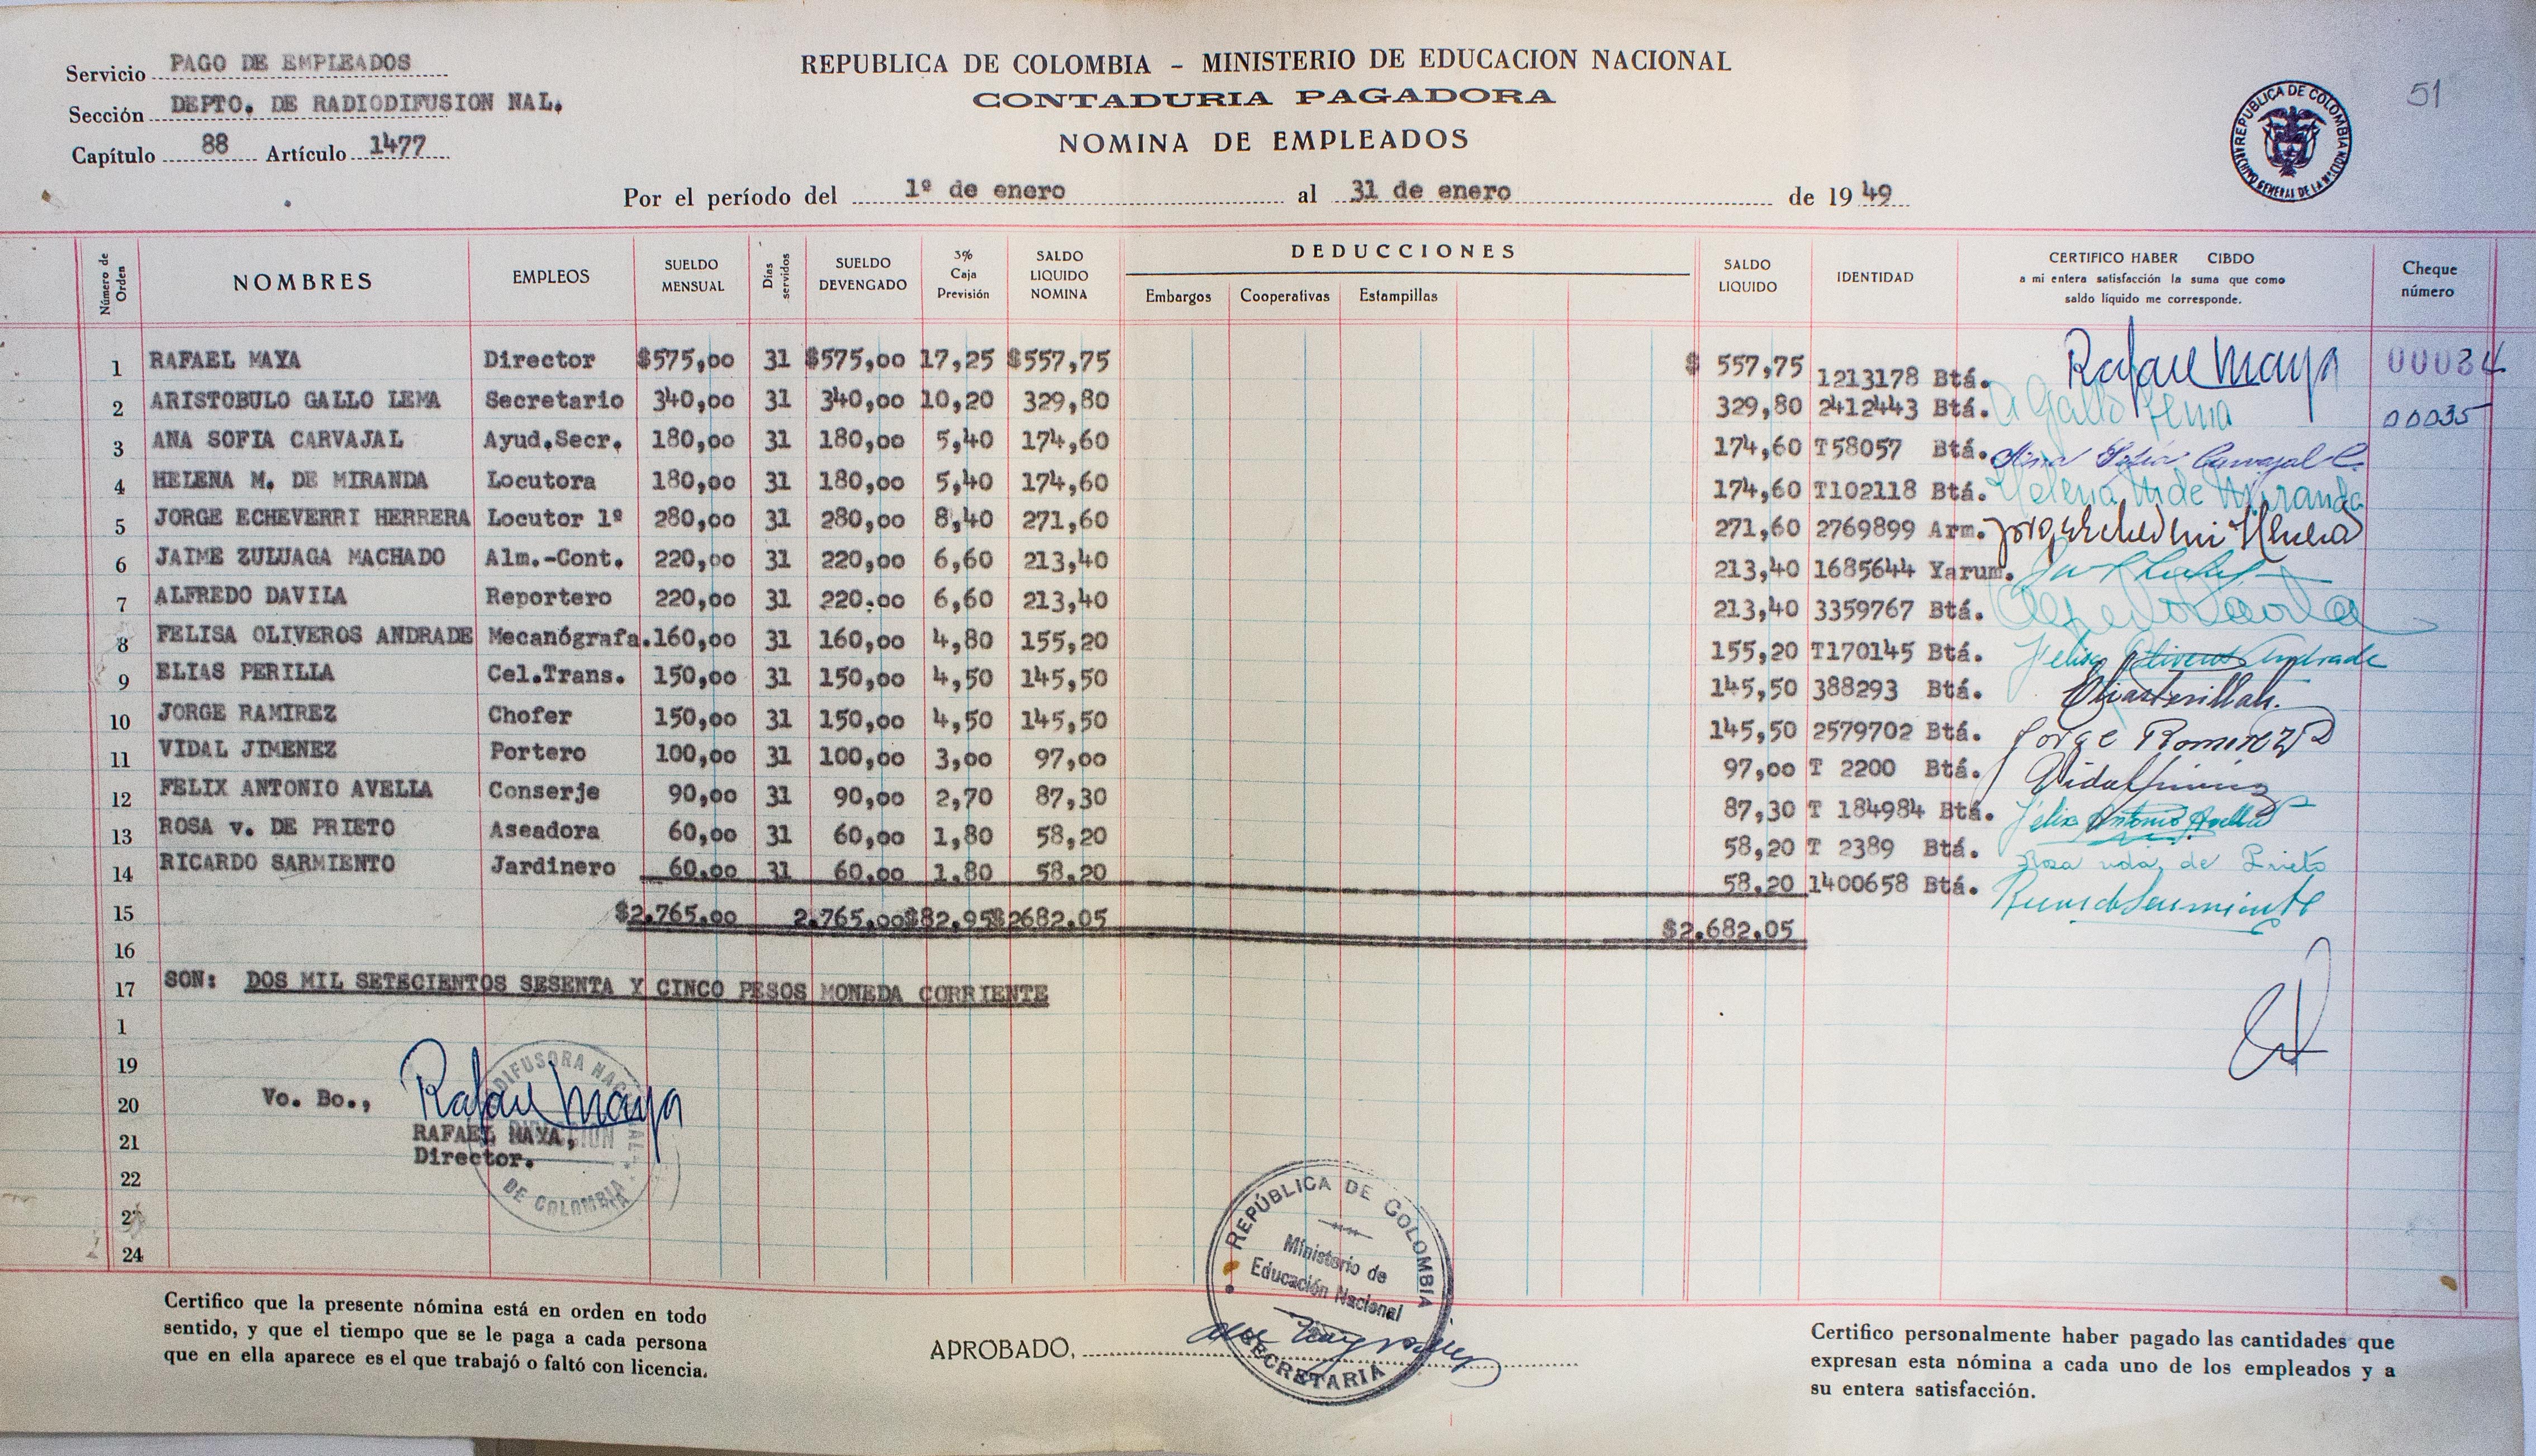 Servicio PAGO DE EMPLEADOS
Sección DEPTO. DE RADIODIFUSION NAL.
Capítulo 88 Artículo 1477
REPUBLICA DE COLOMBIA - MINISTERIO DE EDUCACION NACIONAL
CONTADURIA PAGADORA
NOMINA DE EMPLEADOS
Por el período del 1º de enero al 31 de enero de 1949
REPUBLICA DE COLOMBIA
51
Número de Orden NOMBRES EMPLEOS SUELDO MENSUAL Días servidos SUELDO DEVENGADO 3% Caja Previsión SALDO LIQUIDO NOMINA DEDUCCIONES Embargos Cooperativas Estampillas SALDO LIQUIDO IDENTIDAD CERTIFICO HABER CIBDO a mi entera satisfacción la suma que como saldo líquido me corresponde. Cheque número
1 RAFAEL MAYA Director $575,00 31 $575,00 17,25 $557,75 $ 557,75 1213178 Btá. Rafael Maya 00034
2 ARISTOBULO GALLO LEMA Secretario 340,00 31 340,00 10,20 329,80 329,80 2412443 Btá. A Gallo Lema 00035
3 ANA SOFIA CARVAJAL Ayud.Secr. 180,00 31 180,00 5,40 174,60 174,60 T58057 Btá. Ana Sofía Carvajal C.
4 HELENA M. DE MIRANDA Locutora 180,00 31 180,00 5,40 174,60 174,60 T102118 Btá. Helena M de Miranda
5 JORGE ECHEVERRI HERRERA Locutor 1º 280,00 31 280,00 8,40 271,60 271,60 2769899 Arm. Jorge Echeverri Herrera
6 JAIME ZULUAGA MACHADO Alm.-Cont. 220,00 31 220,00 6,60 213,40 213,40 1685644 Yarum.
7 ALFREDO DAVILA Reportero 220,00 31 220.00 6,60 213,40 213,40 3359767 Btá. Alfredo Davila
8 FELISA OLIVEROS ANDRADE Mecanógrafa. 160,00 31 160,00 4,80 155,20 155,20 T170145 Btá. Felisa Oliveros Andrade
9 ELIAS PERILLA Cel.Trans. 150,00 31 150,00 4,50 145,50 145,50 388293 Btá. Elias Perilla
10 JORGE RAMIREZ Chofer 150,00 31 150,00 4,50 145,50 145,50 2579702 Btá. Jorge Ramirez
11 VIDAL JIMENEZ Portero 100,00 31 100,00 3,00 97,00 97,00 T 2200 Btá. Vidal Jiménez
12 FELIX ANTONIO AVELLA Conserje 90,00 31 90,00 2,70 87,30 87,30 T 184984 Btá. Félix Antonio Avella
13 ROSA v. DE PRIETO Aseadora 60,00 31 60,00 1,80 58,20 58,20 T 2389 Btá. Rosa vda, de Prieto
14 RICARDO SARMIENTO Jardinero 60.00 31 60.00 1.80 58.20 58.20 1400658 Btá. Ricardo Sarmiento
15 $2.765.00 2.765.00 $82.95 $2682.05 $2.682.05
16
17 SON: DOS MIL SETECIENTOS SESENTA Y CINCO PESOS MONEDA CORRIENTE
1
19
20 Vo. Bo., Rafael Maya
21 RAFAEL MAYA,
Director.
22
24
DIFUSORA NACIONAL
DIRECCION
DE COLOMBIA
REPÚBLICA DE COLOMBIA
Ministerio de
Educación Nacional
SECRETARIA
Certifico que la presente nómina está en orden en todo
sentido, y que el tiempo que se le paga a cada persona
que en ella aparece es el que trabajó o faltó con licencia.
APROBADO,
Certifico personalmente haber pagado las cantidades que
expresan esta nómina a cada uno de los empleados y a
su entera satisfacción.